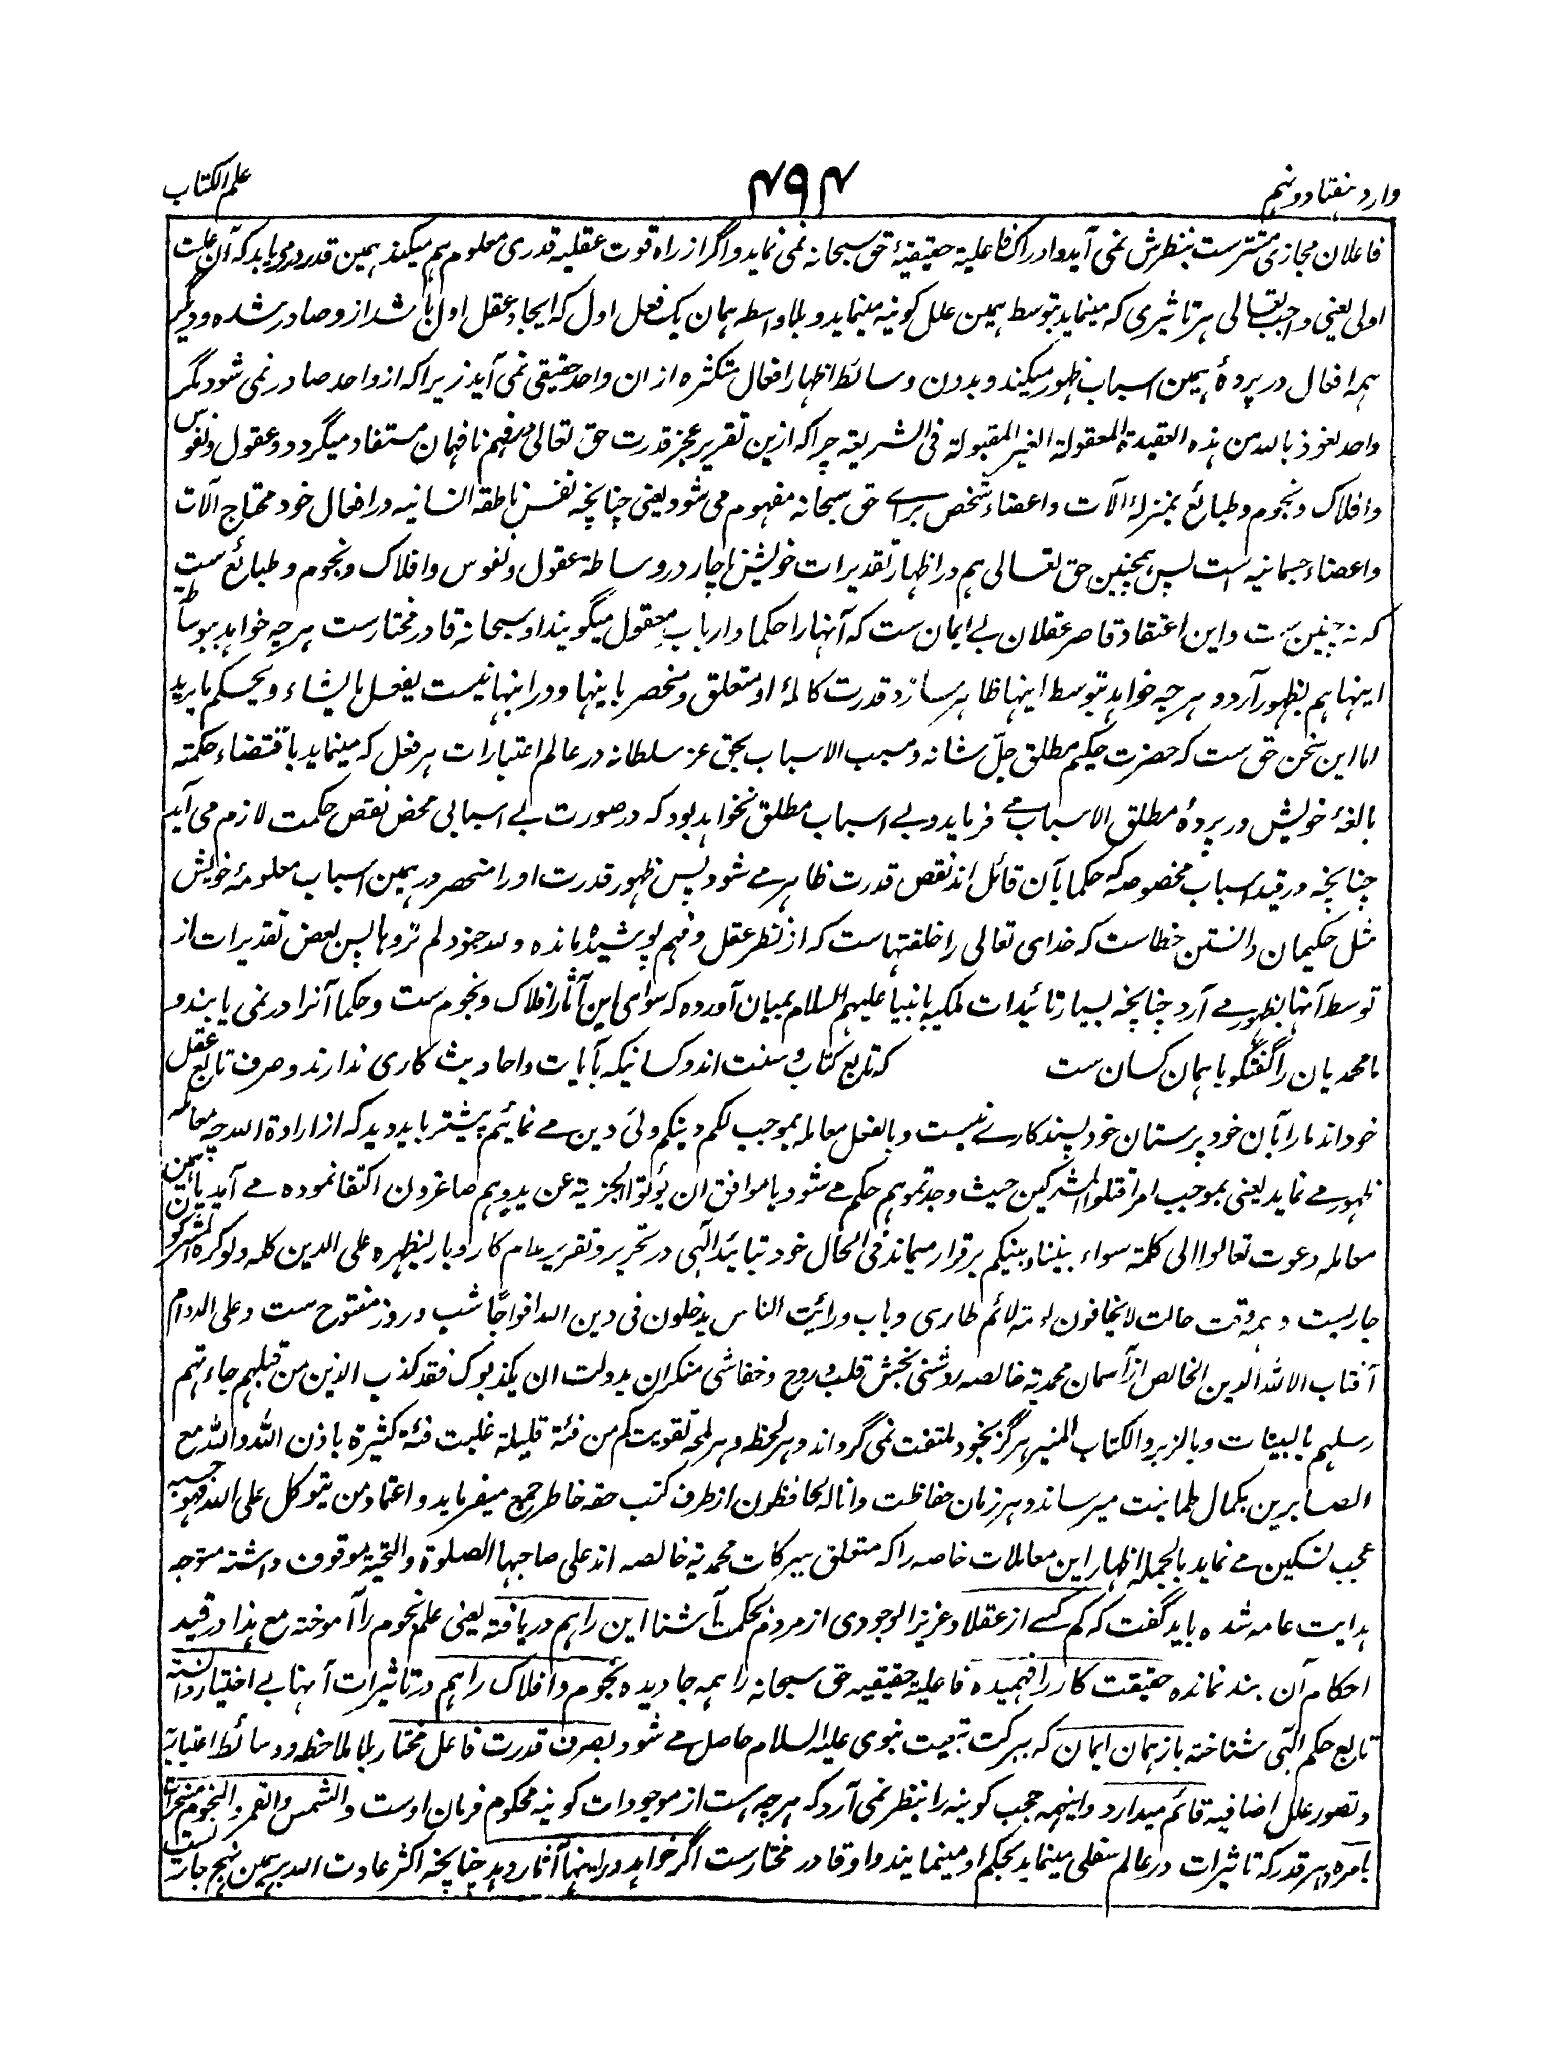 وارد ہفتاد و نہم
۴۹۴
علم الکتاب
فاعلان مجازی مستترست بنظرش نمی آید و ادراک فاعلیة حقیقیۂ حق سبحانہ نمی نماید و اگر از راہ قوت عقلیہ قدری معلوم ہم میکند ہمین قدر درمی یابد کہ آن علت
اولی یعنی واجب تعالی ہر تاثیری کہ مینماید بتوسط ہمین علل کونیہ مینماید و بلا واسطہ ہمان یک فعل اول کہ ایجاد عقل اول باشد از و صادر شدہ و دیگر
ہمہ افعال در پردۂ ہمین اسباب ظہور میکند و بدون وسائط اظہار افعال متکثرہ از ان واحد حقیقی نمی آید زیرا کہ از واحد صادر نمی شود مگر
واحد نعوذ باللہ من ہذہ العقیدة المعقولة الغیر المقبولة فی الشریعة چرا کہ ازین تقریر عجز قدرت حق تعالی در فہم نافہمان مستفاد میگردد و عقول و نفوس
و افلاک و نجوم و طبائع بمنزلۂ آلات و اعضاء شخص برای حق سبحانہ مفہوم می شود یعنی چنانچہ نفس ناطقہ انسانیہ در افعال خود محتاج آلات
و اعضاء جسمانیہ است پس ہمچنین حق تعالی ہم در اظہار تقدیرات خویش ناچار در وساطة عقول و نفوس و افلاک و نجوم و طبائع ست
کہ نہ چنین ست و این اعتقاد قاصر عقلان بے ایمان ست کہ آنہا را حکما و ارباب معقول میگویند او سبحانہ قادر مختارست ہر چہ خواہد بیوساطة
اینہا ہم بظہور آرد و ہر چہ خواہد بتوسط اینہا ظاہر سازد قدرت کاملۂ او متعلق و منحصر باینہا و در اینہا نیست یفعل ما یشاء و یحکم ما یرید
اما این سخن حق ست کہ حضرت حکیم مطلق جل شانہ و مسبب الاسباب بحق عز سلطانہ در عالم اعتبارات ہر فعل کہ مینماید باقتضاء حکمتہ
بالغۂ خویش در پردۂ مطلق الاسباب مے فرماید و بے اسباب مطلق نخواہد بود کہ در صورت بے اسبابی محض نقص حکمت لازم می آید
چنانچہ در قید اسباب مخصوصہ کہ حکما بآن قائل اند نقص قدرت ظاہر مے شود پس ظہور قدرت او را منحصر در ہمین اسباب معلومۂ خویش
مثل حکیمان دانستن خطاست کہ خدای تعالی را خلقتہاست کہ از نظر عقل و فہم پوشیدہ ماندہ و للہ جنود لم تروہا پس بعض تقدیرات از
توسط آنہا بظہور مے آرد چنانچہ بسیار تائیدات ملکیہ بانبیا علیہم السلام بمیان آوردہ کہ سوای این آثار افلاک و نجوم ست و حکما آنرا در نمی یابند و
ما محمدیان را گفتگو با ہمان کسان ست کہ تابع کتاب و سنت اند و کسانیکہ بآیات و احادیث کاری ندارند و صرف تابع عقل
خود اند ما را بآن خود پرستان خود پسند کارے نیست و بالفعل معاملہ بموجب لکم دینکم ولی دین مے نمائیم پیشتر باید دید کہ از ارادة اللہ چہ معاملہ
ظہور مے نماید یعنی بموجب امر اقتلوا المشرکین حیث وجدتموہم حکم مے شود یا موافق ان یؤتوا الجزیة عن ید وہم صاغرون اکتفا نمودہ مے آید یا ہمین
معاملہ دعوت تعالوا الی کلمة سواء بیننا و بینکم برقرار میماند فی الحال خود بتائید الٰہی در تحریر و تقریر مدام کاروبار لیظہرہ علی الدین کلہ ولو کرہ المشرکون
جاریست و ہمہ وقت حالت لا یخافون لومة لائم طاری و باب و رأیت الناس یدخلون فی دین اللہ افواجاً شب و روز مفتوح ست و علی الدوام
آفتاب الا للہ الدین الخالص از آسمان محمدیة خالصہ روشنی بخش قلب و روح و خفاشی منکران بدولت ان یکذبوک فقد کذب الذین من قبلہم جاءتہم
رسلہم بالبینات و بالزبر و الکتاب المنیر ہرگز بخود ملتفت نمی گرداند و ہر لحظہ و ہر لمحہ تقویت کم من فئة قلیلة غلبت فئة کثیرة باذن اللہ و اللہ مع
الصابرین بکمال طمانیت میرساند و ہر زمان حفاظت و انا لہ لحافظون از طرف کتب حقہ خاطر جمع میفرماید و اعتماد من یتوکل علی اللہ فہو حسبہ
عجب تسکین مے نماید بالجملہ اظہار این معاملات خاصہ را کہ متعلق ببرکات محمدیة خالصہ اند علی صاحبہا الصلوة و التحیة موقوف داشتہ متوجہ
ہدایت عامہ شدہ باید گفت کہ کم کسے از عقلا و عزیز الوجودی از مردم بحکمت آشنا این را ہم دریافتہ یعنی علم نجوم را آموختہ مع ہذا در قید
احکام آن بند نماندہ حقیقت کار را فہمیدہ فاعلیة حقیقیہ حق سبحانہ را ہمہ جا دیدہ نجوم و افلاک را ہم در تاثیرات آنہا بے اختیار دانستہ
تابع حکم الٰہی شناختہ باز ہمان ایمان کہ ببرکت تبعیت نبوی علیہ السلام حاصل مے شود بصرف قدرت فاعل مختار بلا ملاحظہ وسائط اعتباریہ
و تصور علل اضافیہ قائم میدارد و اینہمہ حجب کونیہ را بنظر نمی آرد کہ ہر چہ ہست از موجودات کونیہ محکوم فرمان اوست و الشمس و القمر و النجوم مسخرات
بامرہ و ہر قدر کہ تاثیرات در عالم سفلی مینماید بحکم او مینمایند و او قادر مختارست اگر خواہد در اینہا آثار دہد چنانچہ اکثر عادت اللہ بر ہمین نہج جاریست